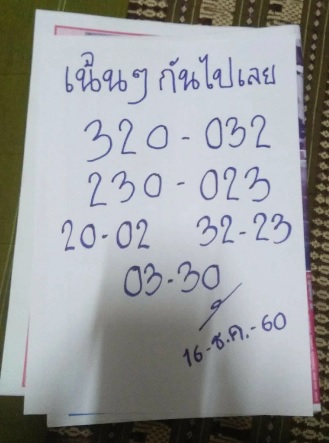 เน้นๆ กันไปเลย
320-032
230-023
20-02 32-23
03-30
16-ธ.ค.-60